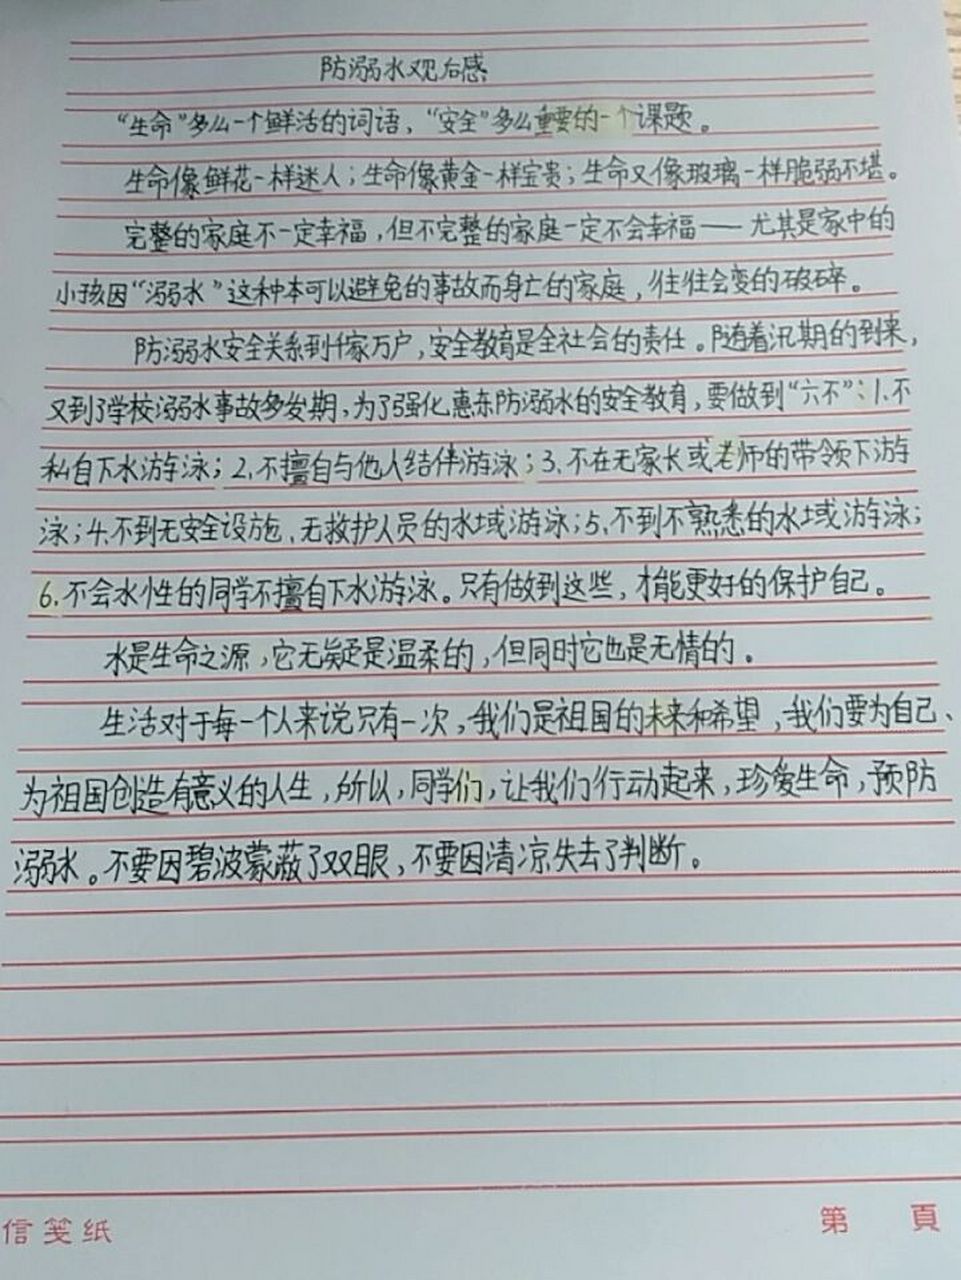 防溺水观后感
“生命”多么一个鲜活的词语，“安全”多么重要的一个课题。
生命像鲜花一样迷人；生命像黄金一样宝贵；生命又像玻璃一样脆弱不堪。
完整的家庭不一定幸福，但不完整的家庭一定不会幸福——尤其是家中的
小孩因“溺水”这种本可以避免的事故而身亡的家庭，往往会变的破碎。
防溺水安全关系到千家万户，安全教育是全社会的责任。随着汛期的到来，
又到了学校溺水事故多发期，为了强化惠东防溺水的安全教育，要做到“六不”：1.不
私自下水游泳；2.不擅自与他人结伴游泳；3.不在无家长或老师的带领下游
泳；4.不到无安全设施、无救护人员的水域游泳；5.不到不熟悉的水域游泳；
6.不会水性的同学不擅自下水游泳。只有做到这些，才能更好的保护自己。
水是生命之源，它无疑是温柔的，但同时它也是无情的。
生活对于每一个人来说只有一次，我们是祖国的未来和希望，我们要为自己、
为祖国创造有意义的人生，所以，同学们，让我们行动起来，珍爱生命，预防
溺水。不要因碧波蒙蔽了双眼，不要因清凉失去了判断。
信笺纸 第 頁